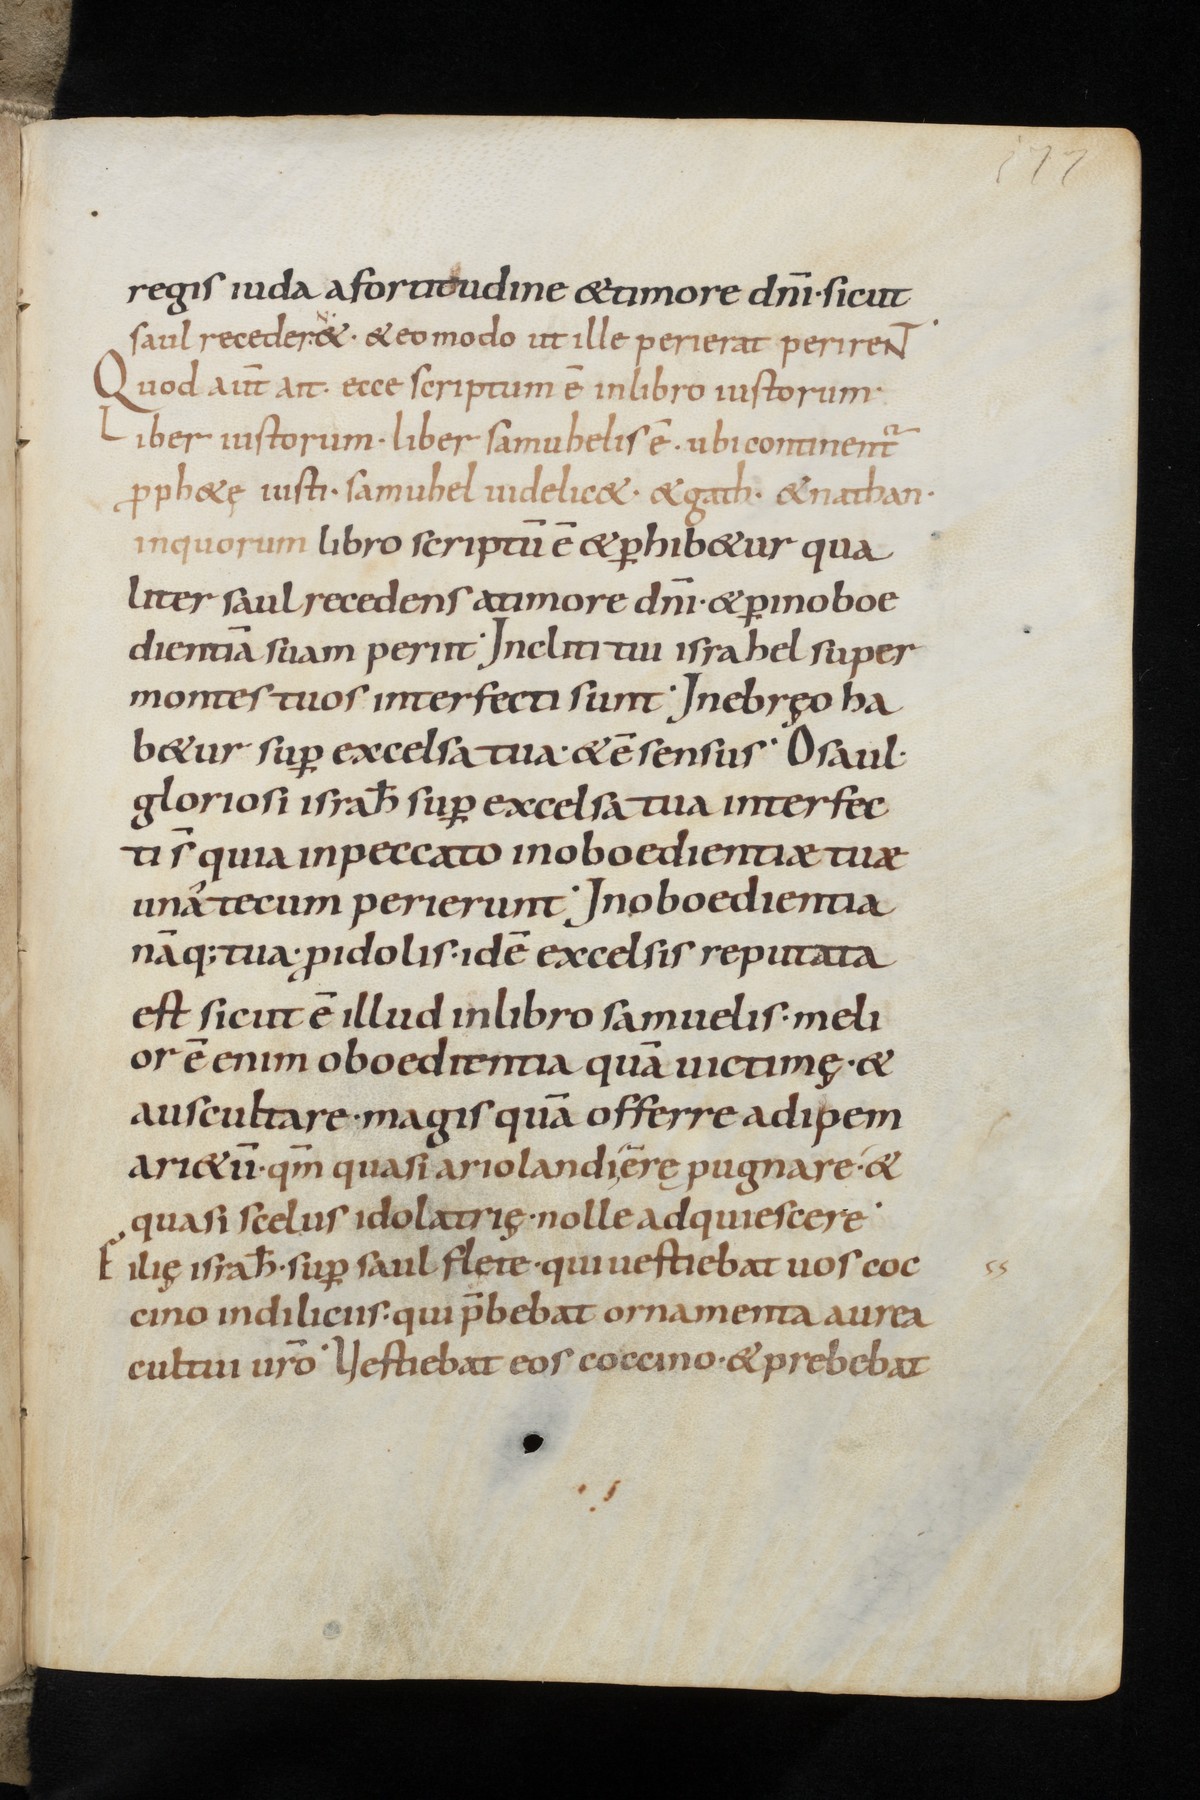 177
regis iuda afortitudine &timore dn̄i·sicut
saul receder&· &eomodo ut ille perierat perireNT·
Quod aut̄ ait· ecce scriptum ē inlibro iustorum·
Liber iustorum· liber samuhelis ē· ubicontinent᷑
pph&ę iusti· samuhel uidelic&· &gath· &nathan·
inquorum libro scriptū ē &ꝑhib&ur qua
liter saul recedens atimore dn̄i·&ꝑinoboe
dientiā suam periit· Incliti tui israhel super
montes tuos interfecti sunt· Inebręo ha
b&ur suꝑ excelsa tua·&ē sensus· O saul·
gloriosi israħ suꝑ excelsa tua interfec
ti s̄ quia inpeccato inoboedientiæ tuæ
una tecum perierunt· Inoboedientia
nāq; tua·ꝓidolis·idē excelsis reputata
est sicut ē illud inlibro samuelis·meli
or ē enim oboedientia quā uictimę·&
auscultare·magis quā offerre adipem
ari&ū·qm̄ quasi ariolandi ē rę pugnare·&
quasi scelus idolatrię·nolle adquiescere·
Filię israħ·suꝑ saul flęte·qui uestiebat uos coc
cino indiliciis·qui p̄bebat ornamenta aurea
cultui uro᷑· Vestiebat eos coccino·&prebebat